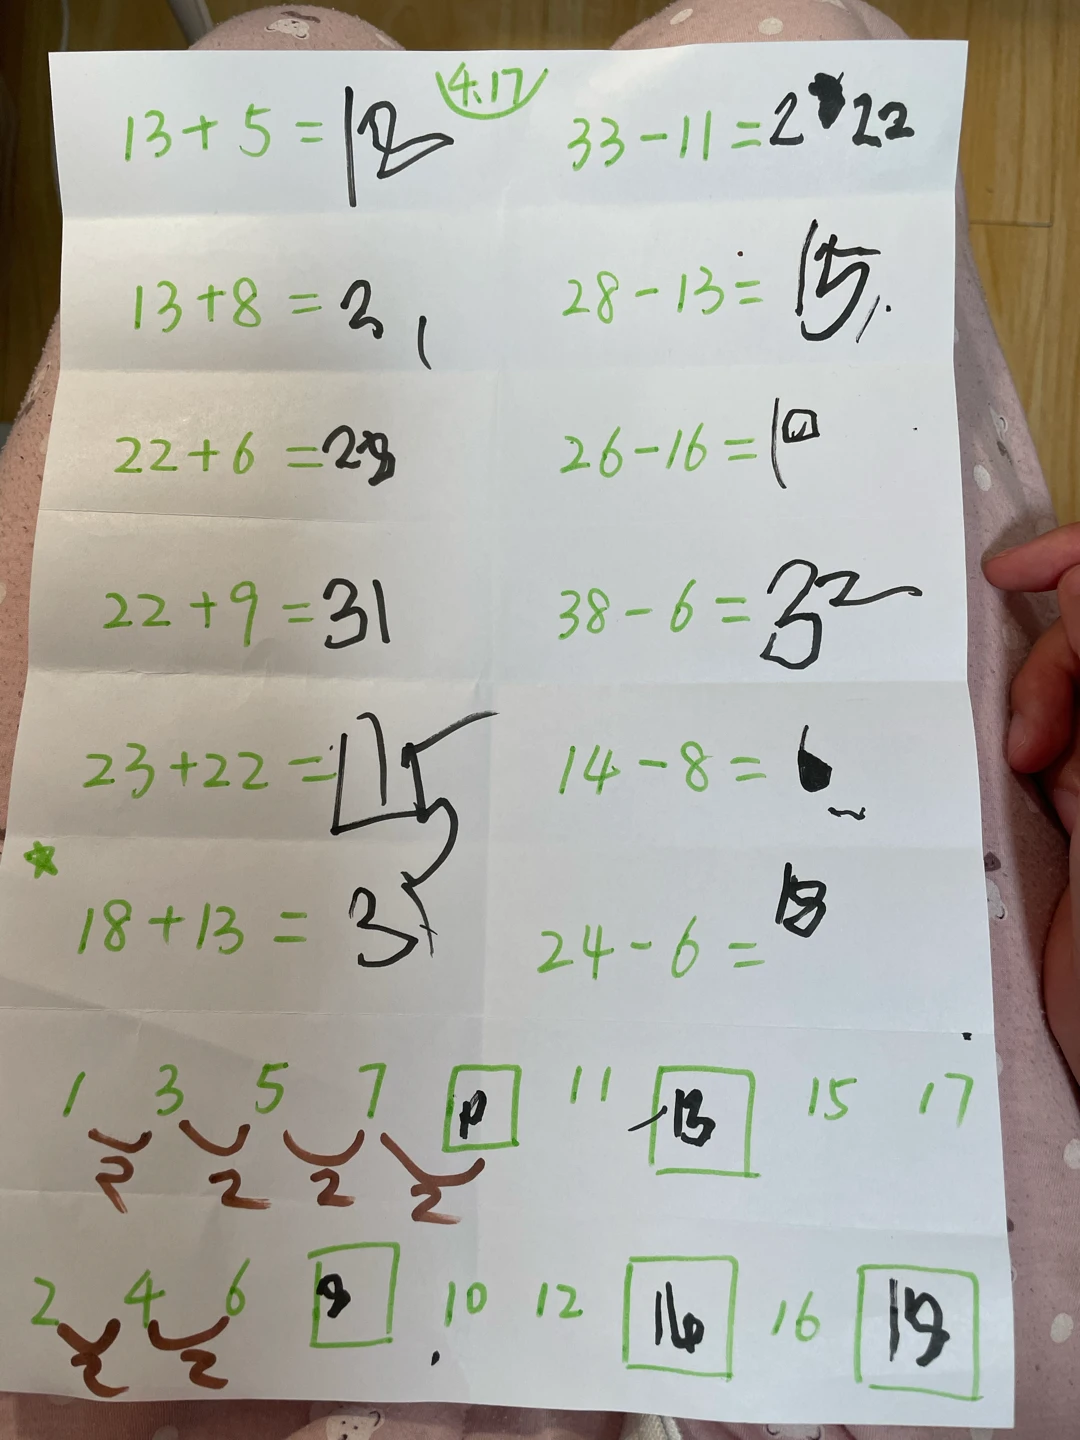 4.17
13+5=18 33-11=2 22
13+8=21 28-13=15
22+6=28 26-16=10
22+9=31 38-6=32
23+22=45 14-8=6
18+13=31 24-6=18
1 3 5 7 9 11 13 15 17
2 2 2 2
2 4 6 8 10 12 14 16 18
2 2